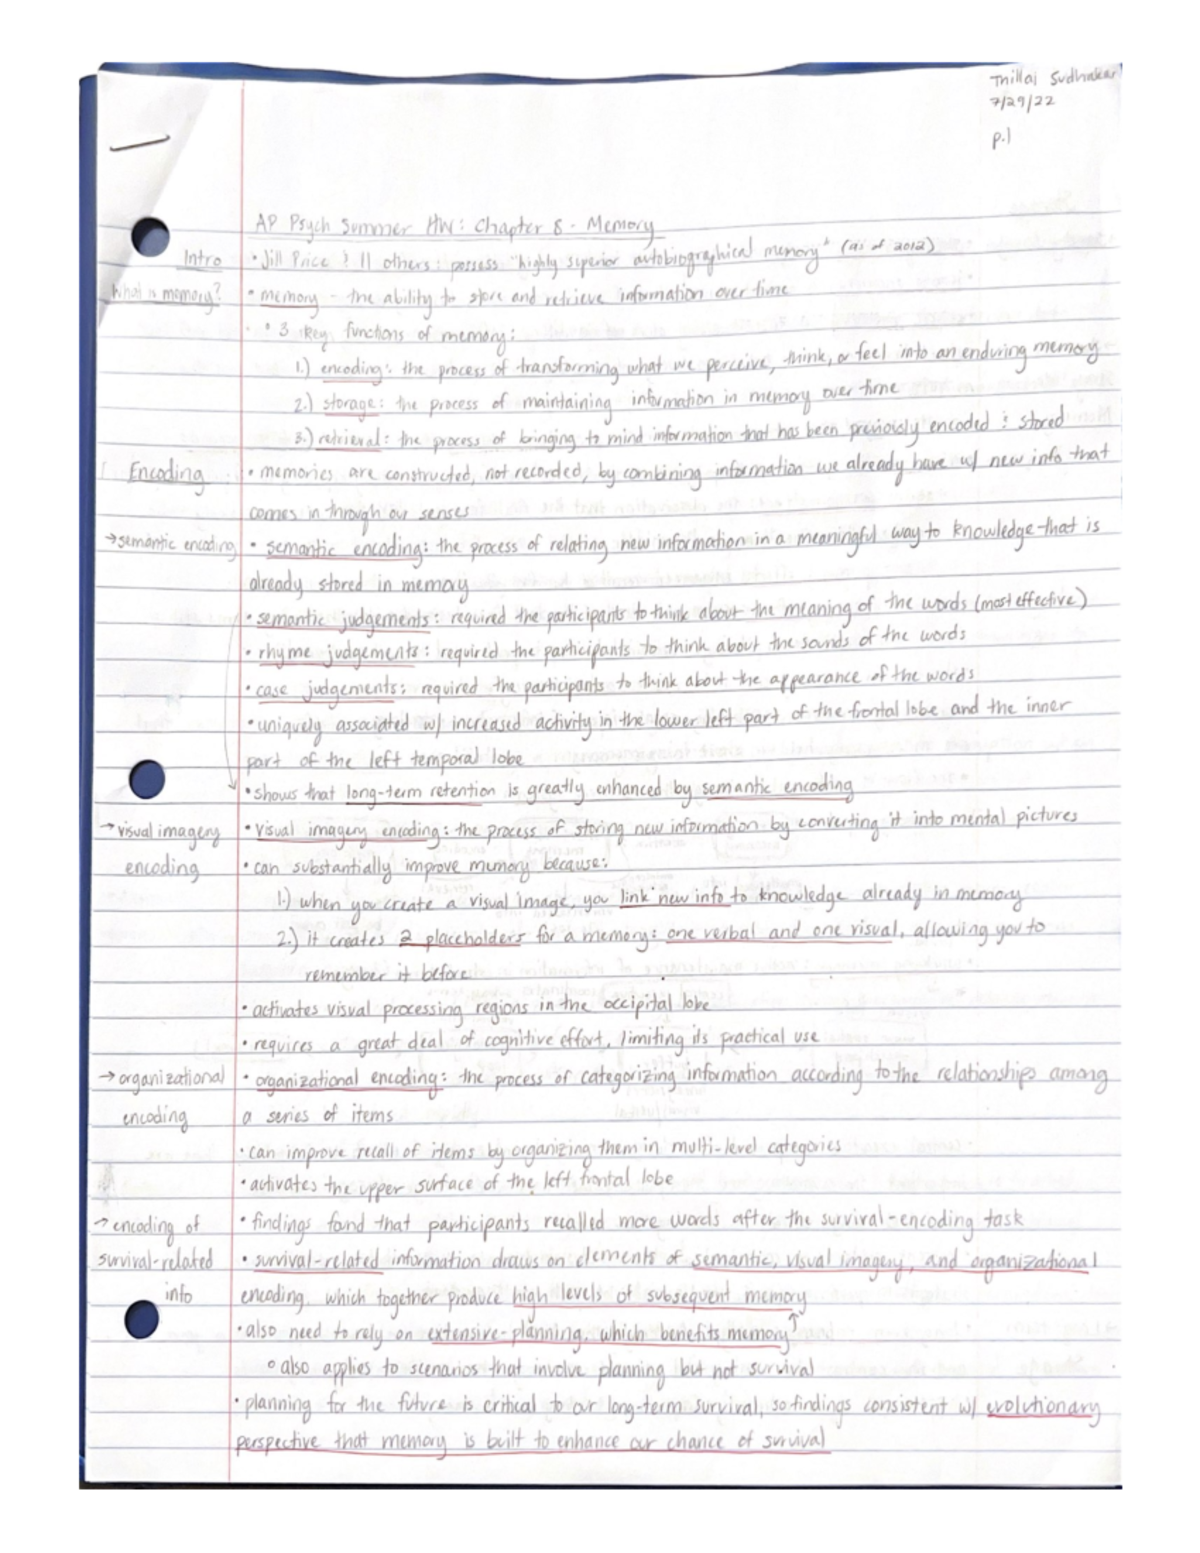 Thillai Sudhakar
7/29/22
p.1
AP Psych Summer HW: Chapter 8 - Memory
Intro • Jill Price & 11 others: possess "highly superior autobiographical memory" (as of 2012)
What is memory? • memory - the ability to store and retrieve information over time
• 3 key functions of memory:
1.) encoding: the process of transforming what we perceive, think, or feel into an enduring memory
2.) storage: the process of maintaining information in memory over time
3.) retrieval: the process of bringing to mind information that has been previously encoded & stored
Encoding • memories are constructed, not recorded, by combining information we already have w/ new info that
comes in through our senses
→ semantic encoding • semantic encoding: the process of relating new information in a meaningful way to knowledge that is
already stored in memory
• semantic judgements: required the participants to think about the meaning of the words (most effective)
• rhyme judgements: required the participants to think about the sounds of the words
• case judgements: required the participants to think about the appearance of the words
• uniquely associated w/ increased activity in the lower left part of the frontal lobe and the inner
part of the left temporal lobe
• shows that long-term retention is greatly enhanced by semantic encoding
→ visual imagery • visual imagery encoding: the process of storing new information by converting it into mental pictures
encoding • can substantially improve memory because:
1.) when you create a visual image, you link new info to knowledge already in memory
2.) it creates 2 placeholders for a memory: one verbal and one visual, allowing you to
remember it before
• activates visual processing regions in the occipital lobe
• requires a great deal of cognitive effort, limiting its practical use
→ organizational • organizational encoding: the process of categorizing information according to the relationships among
encoding a series of items
• can improve recall of items by organizing them in multi-level categories
• activates the upper surface of the left frontal lobe
→ encoding of • findings found that participants recalled more words after the survival-encoding task
survival-related • survival-related information draws on elements of semantic, visual imagery, and organizational
info encoding, which together produce high levels of subsequent memory
• also need to rely on extensive-planning, which benefits memory ↑
° also applies to scenarios that involve planning but not survival
• planning for the future is critical to our long-term survival, so findings consistent w/ evolutionary
perspective that memory is built to enhance our chance of survival